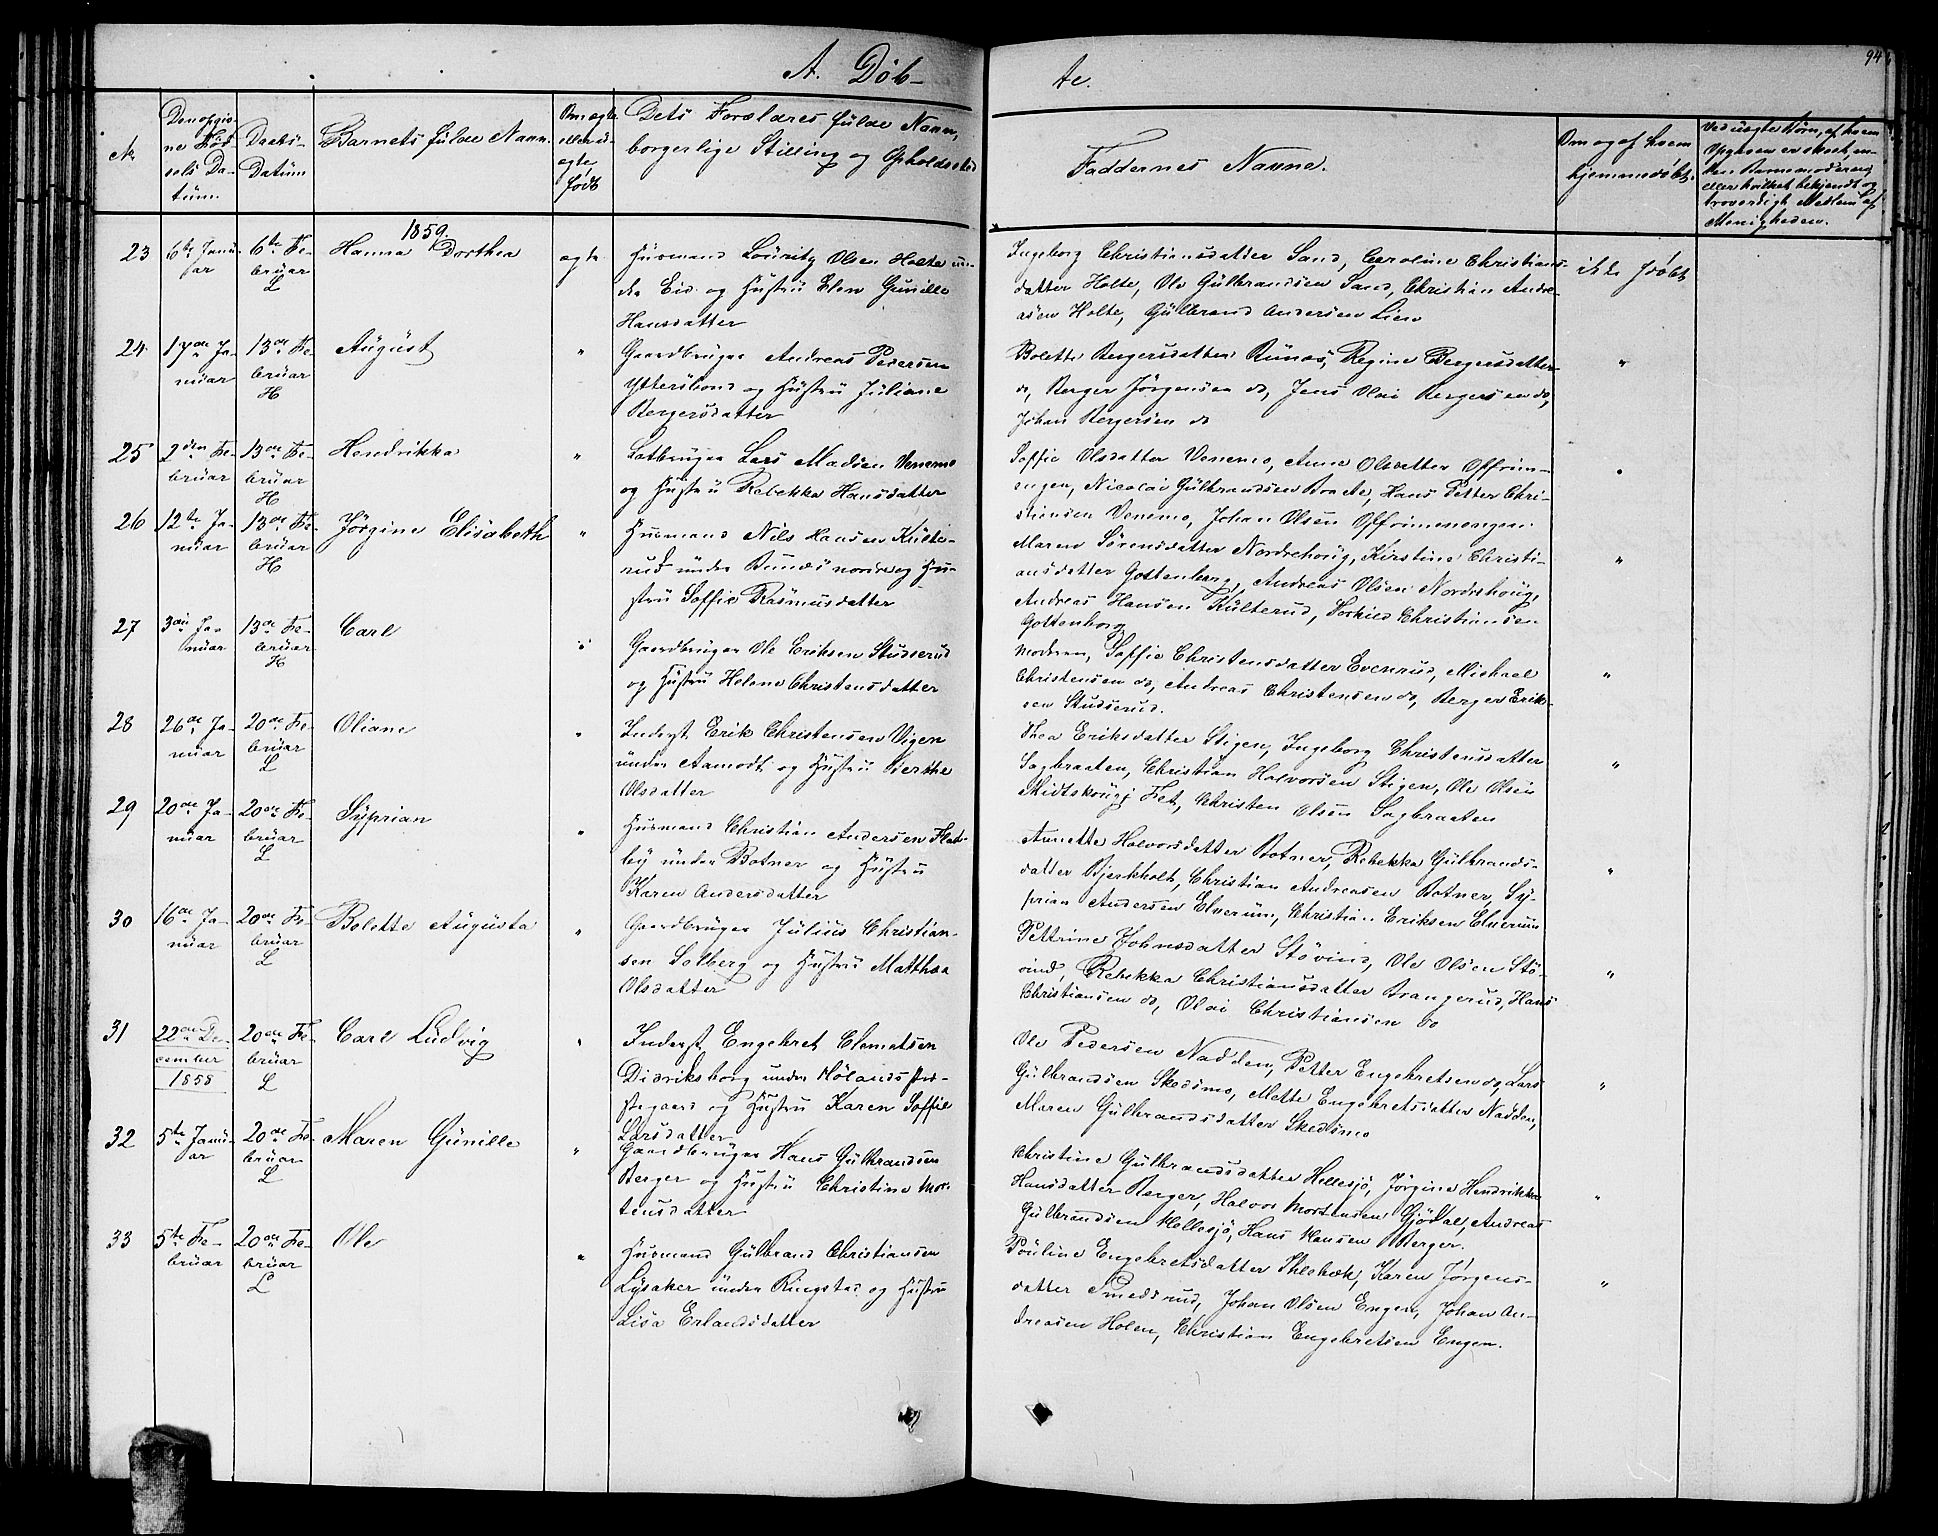 A. Döb-
te.
94
№
Den opgiv-
ne Föd-
sels Da-
tüm.
Daabs-
Datüm
Barnets fülde Navn.
Om ægte
eller u-
ægte
födt
Dets Forældres fülde Navn,
borgerlige Stilling og Opholdssted
Faddernes Navne.
Om og af hvem
hjemmedöbt.
Ved uægte Börn, af hvem
Opgaven er skeet, en-
ten Barnemoderen
eller hvilket bekjendt og
troværdigt Medlem af
Menigheden.
1859.
23
6te Janu-
ar
6te Fe-
bruar
L
Hanna Dorthea
ægte
Husmand Lauritz Olsen Holte un-
der Eid og Hustru Elen Gunille
Hansdatter
Ingeborg Christiansdatter Sand, Caroline Christians-
datter Holte, Ole Gülbrandsen Sand, Christian Andre-
asen Holte, Gülbrand Andersen Lien
ikke döbt
24
17de Ja-
nuar
13de Fe-
bruar
H
August
"
Gaardbruger Andreas Pedersen
Yttersbond og Hustru Juliane
Bergersdatter
Bolette Bergersdatter Bunæs, Regine Bergersdatter
do, Berger Jörgensen do, Jens Olai Bergersen do,
Johan Bergersen do
"
25
2den Fe-
bruar
13de Fe-
bruar
H
Hendrikka
"
Lodbruger Lars Madsen Venemo
og Hustru Rebekka Hansdatter
Soffie Olsdatter Venemo, Anne Olsdatter
Nicolai Gülbrandsen Braate, Hans Petter Chri-
stiansen Venemo, Johan Olsen
"
26
12te Ja-
nuar
13de Fe-
bruar
H
Jörgine Elisabeth
"
Husmand Nils Hansen Kulte-
rud under Bunæs nordre og Hu-
stru Soffie Rasmusdatter
Maren Sörensdatter Nordrehoug, Kirstine Christi-
ansdatter Gottenborg, Andreas Olsen Nordrehoug,
Andreas Hansen Kulterud, Torkild Christiansen
Gottenborg
"
27
3die Ja-
nuar
13de Fe-
bruar
H
Carl
"
Gaardbruger Ole Eriksen Studserud
og Hustru Helene Christensdatter
Moderen, Soffie Christensdatter Evenrud, Michael
Christensen do, Andreas Christensen do, Berger Erik-
sen Studserud.
"
28
26de Ja-
nuar
20de Fe-
bruar
L
Oliane
"
Inderst Erik Christensen Vigen
under Aamodt og Hustru Bierthe
Olsdatter
Thea Eriksdatter Stigen, Ingeborg Christensdatter
Sagbraaten, Christian Halvorsen Stigen, Ole Olsen
Midtskoug i Fet, Christen Olsen Sagbraaten
"
29
20de Ja-
nuar
20de Fe-
bruar
L
Syprian
"
Husmand Christian Andersen Flad-
by under Botner og Hustru
Karen Andersdatter
Annette Halvorsdatter Botner, Rebekka Gülbrands-
datter Bjerkholt, Christian Andreasen Botner, Sy-
prian Andersen Elverum, Christian Eriksen Elverum
"
30
16de Ja-
nuar
20de Fe-
bruar
L
Bolette Augusta
"
Gaardbruger Julius Christian-
sen Solberg og Hustru Matthea
Olsdatter
Pettrine Johnsdatter Stövind, Ole Olsen Stö-
vind, Rebekka Christiansdatter Brangerud, Hans
Christiansen do, Olai Christiansen do
"
31
22de De-
cember
1858
20de Fe-
bruar
L
Carl Ludvig
"
Inderst Engebret Clematsen
Didriksborg under Hölands Præ-
stegaard og Hustru Karen Soffie
Larsdatter
Ole Pedersen Nadden, Petter Engebretsen do, Lars
Gülbrandsen Skedsmo, Mette Engebretsdatter Nadden,
Maren Gülbrandsdatter Skedsmo
"
32
5te Janu-
ar
20de Fe-
bruar
L
Maren Gunille
"
Gaardbruger Hans Gülbrandsen
Berger og Hustru Christine Mor-
tensdatter
Christine Gülbrandsdatter Hellesjö, Jörgine Hendrikka
Hansdatter Berger, Halvor Mortensen Gjödal, Andreas
Gülbrandsen Hellesjö, Hans Hansen Berger.
"
33
5te Fe-
bruar
20de Fe-
bruar
L
Ole
"
Husmand Gülbrand Christiansen
Lysaker under Ringstad og Hustru
Lisa Erlandsdatter
Pauline Engebretsdatter Ihlebæk, Karen Jörgens-
datter Smedsrud, Johan Olsen Engen, Johan An-
dreasen Holen, Christian Engebretsen Engen.
"